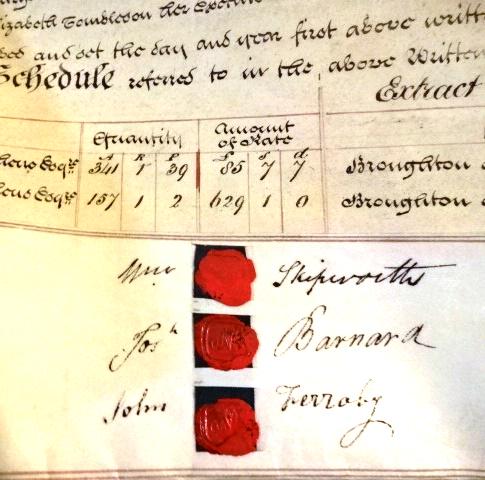 Elizabeth Tombleson her Execut
and set the day and year first above writt
Schedule referred to in the above Written
Extract
Quantity Amount of Rate
A R P £ s d
Esqre 341 1 39 85 7 7 Broughton
Esqre 157 1 2 629 1 0 Broughton
Wm Skipworth
Josh Barnard
John Ferraby